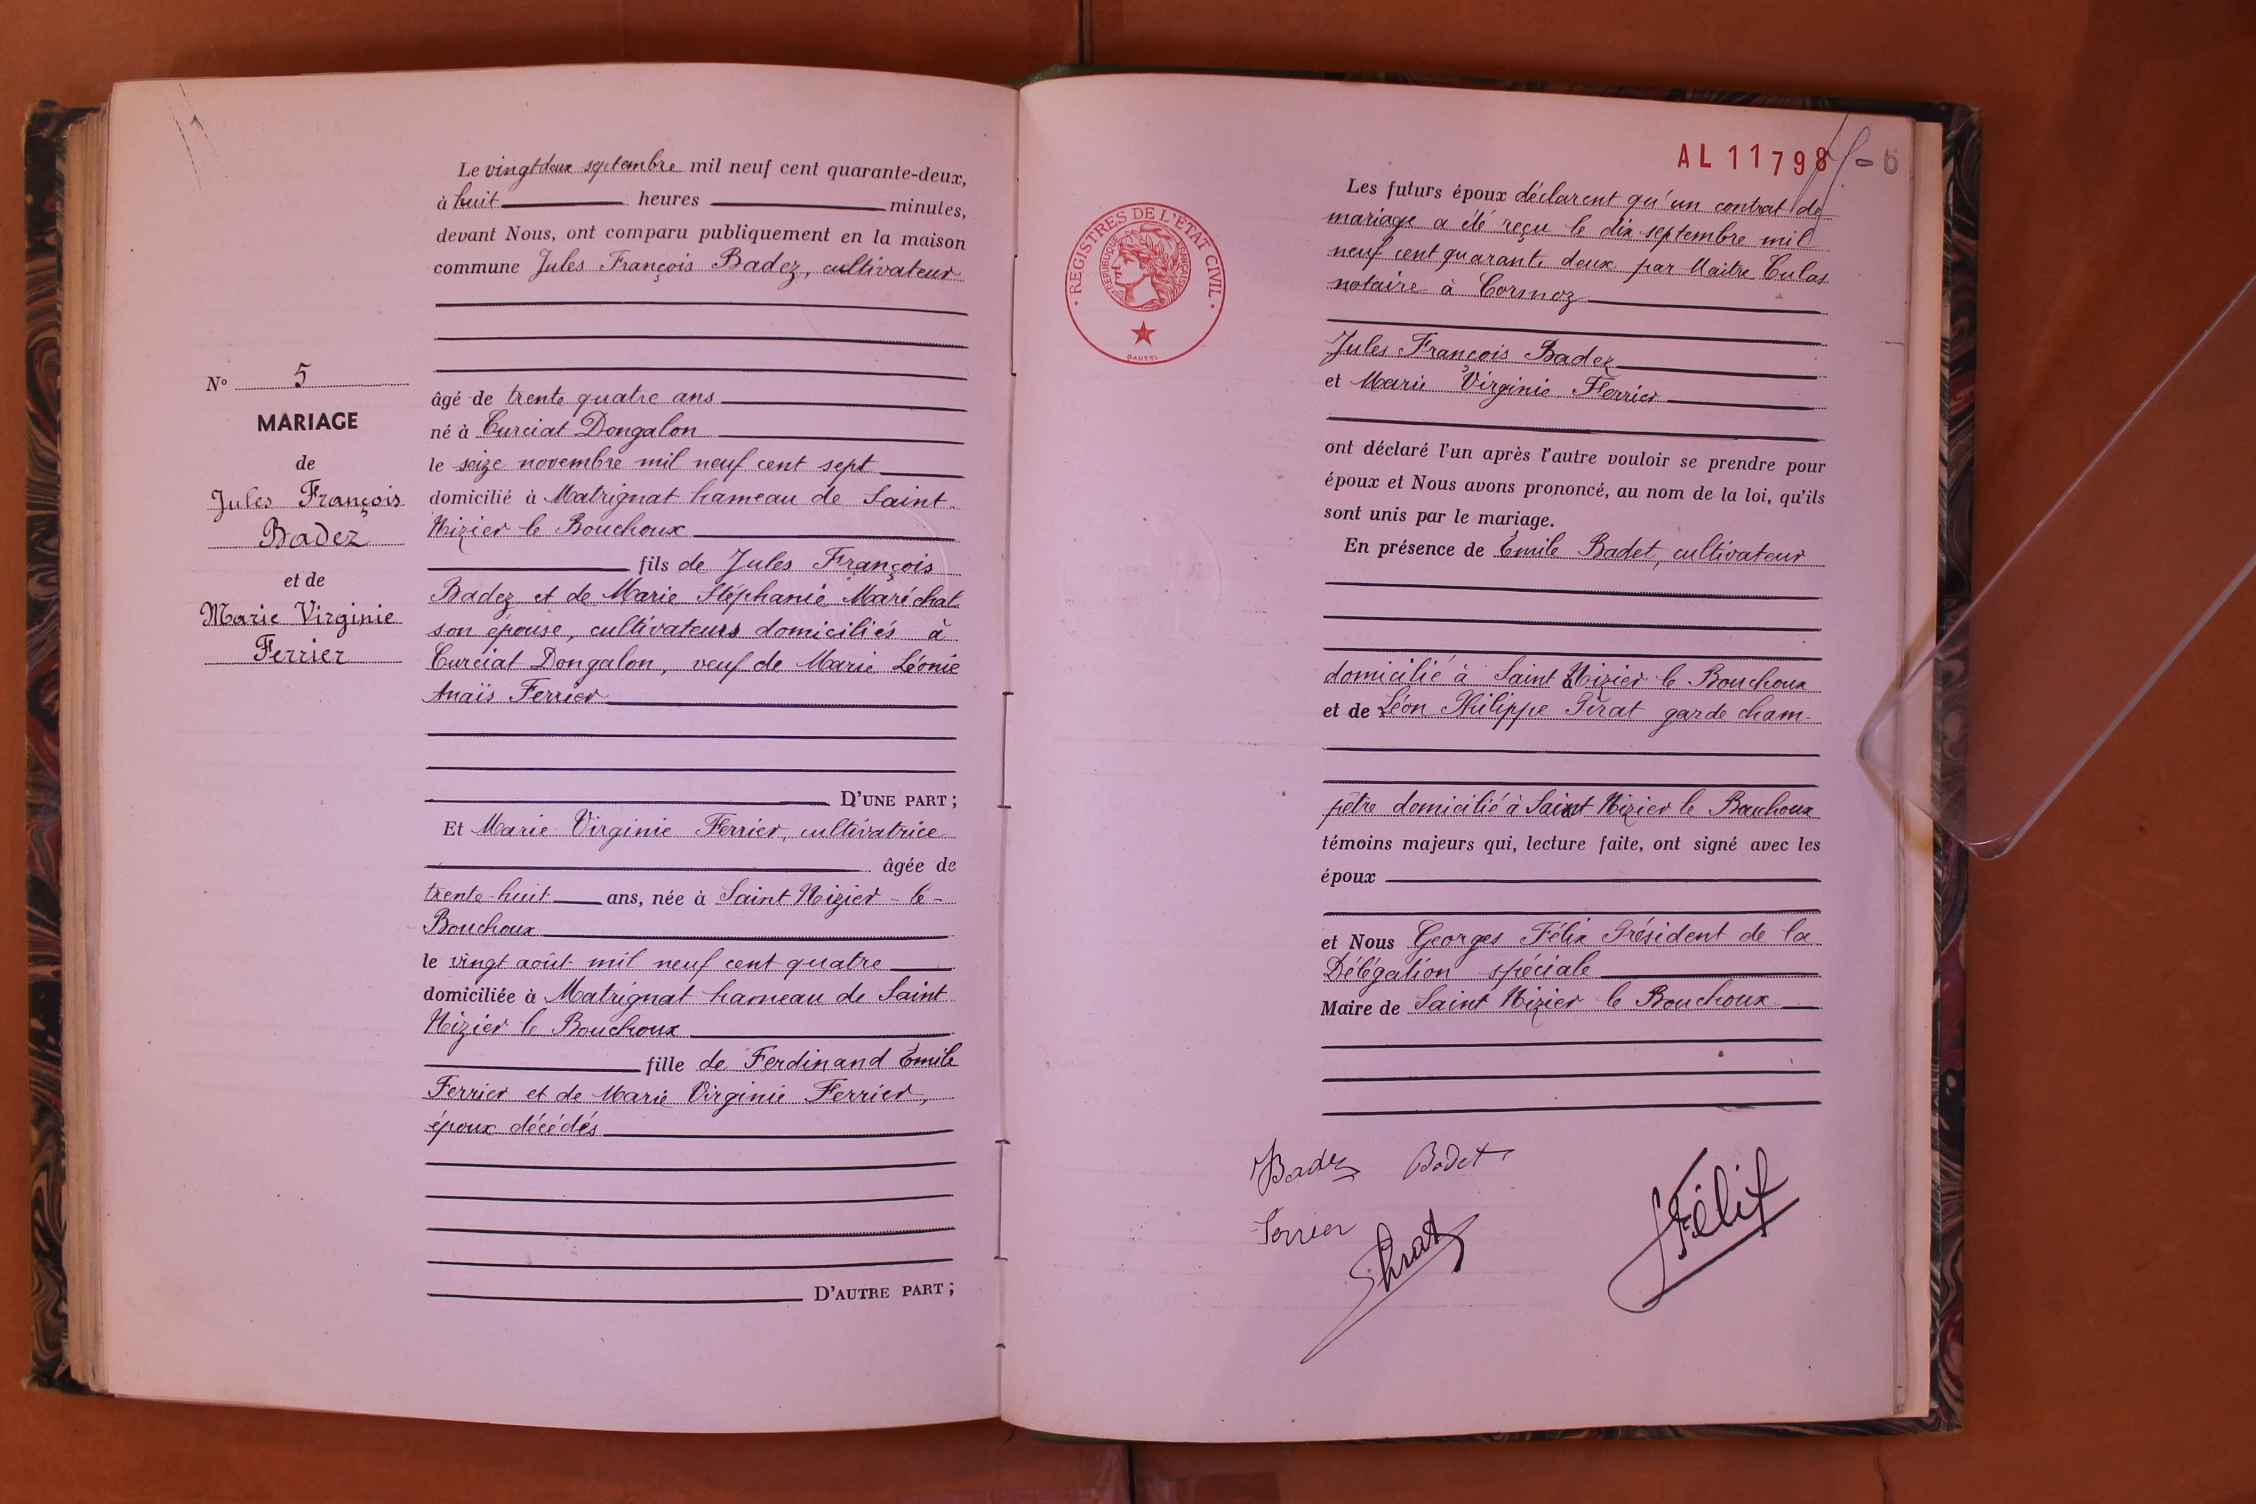 Le vingt deux septembre mil neuf cent quarante-deux,
à huit heures minutes,
devant Nous, ont comparu publiquement en la maison
commune Jules François Badez, cultivateur
N° 5
MARIAGE
de
Jules François
Badez
et de
Marie Virginie
Ferrier
âgé de trente quatre ans
né à Curciat Dongalon
le seize novembre mil neuf cent sept
domicilié à Matrignat hameau de Saint
Nizier le Bouchoux
fils de Jules François
Badez et de Marie Stéphanie Maréchal
son épouse, cultivateurs domiciliés à
Curciat Dongalon, veuf de Marie Léonie
Anaïs Ferrier
D'UNE PART ;
Et Marie Virginie Ferrier, cultivatrice
âgée de
trente-huit ans, née à Saint Nizier-le-
Bouchoux
le vingt août mil neuf cent quatre
domiciliée à Matrignat hameau de Saint
Nizier le Bouchoux
fille de Ferdinand Émile
Ferrier et de Marie Virginie Ferrier,
époux décédés
D'AUTRE PART ;
AL 11798
REGISTRES DE L'ÉTAT CIVIL
Les futurs époux déclarent qu'un contrat de
mariage a été reçu le dix septembre mil
neuf cent quarante deux par Maitre Culas
notaire à Cormoz
Jules François Badez
et Marie Virginie Ferrier
ont déclaré l'un après l'autre vouloir se prendre pour
époux et Nous avons prononcé, au nom de la loi, qu'ils
sont unis par le mariage.
En présence de Émile Badet, cultivateur
domicilié à Saint Nizier le Bouchoux
et de Léon Philippe Pirat garde cham-
pêtre domicilié à Saint Nizier le Bouchoux
témoins majeurs qui, lecture faite, ont signé avec les
époux
et Nous Georges Félix Président de la
Délégation spéciale
Maire de Saint Nizier le Bouchoux
Badez Badet
Ferrier
Félix